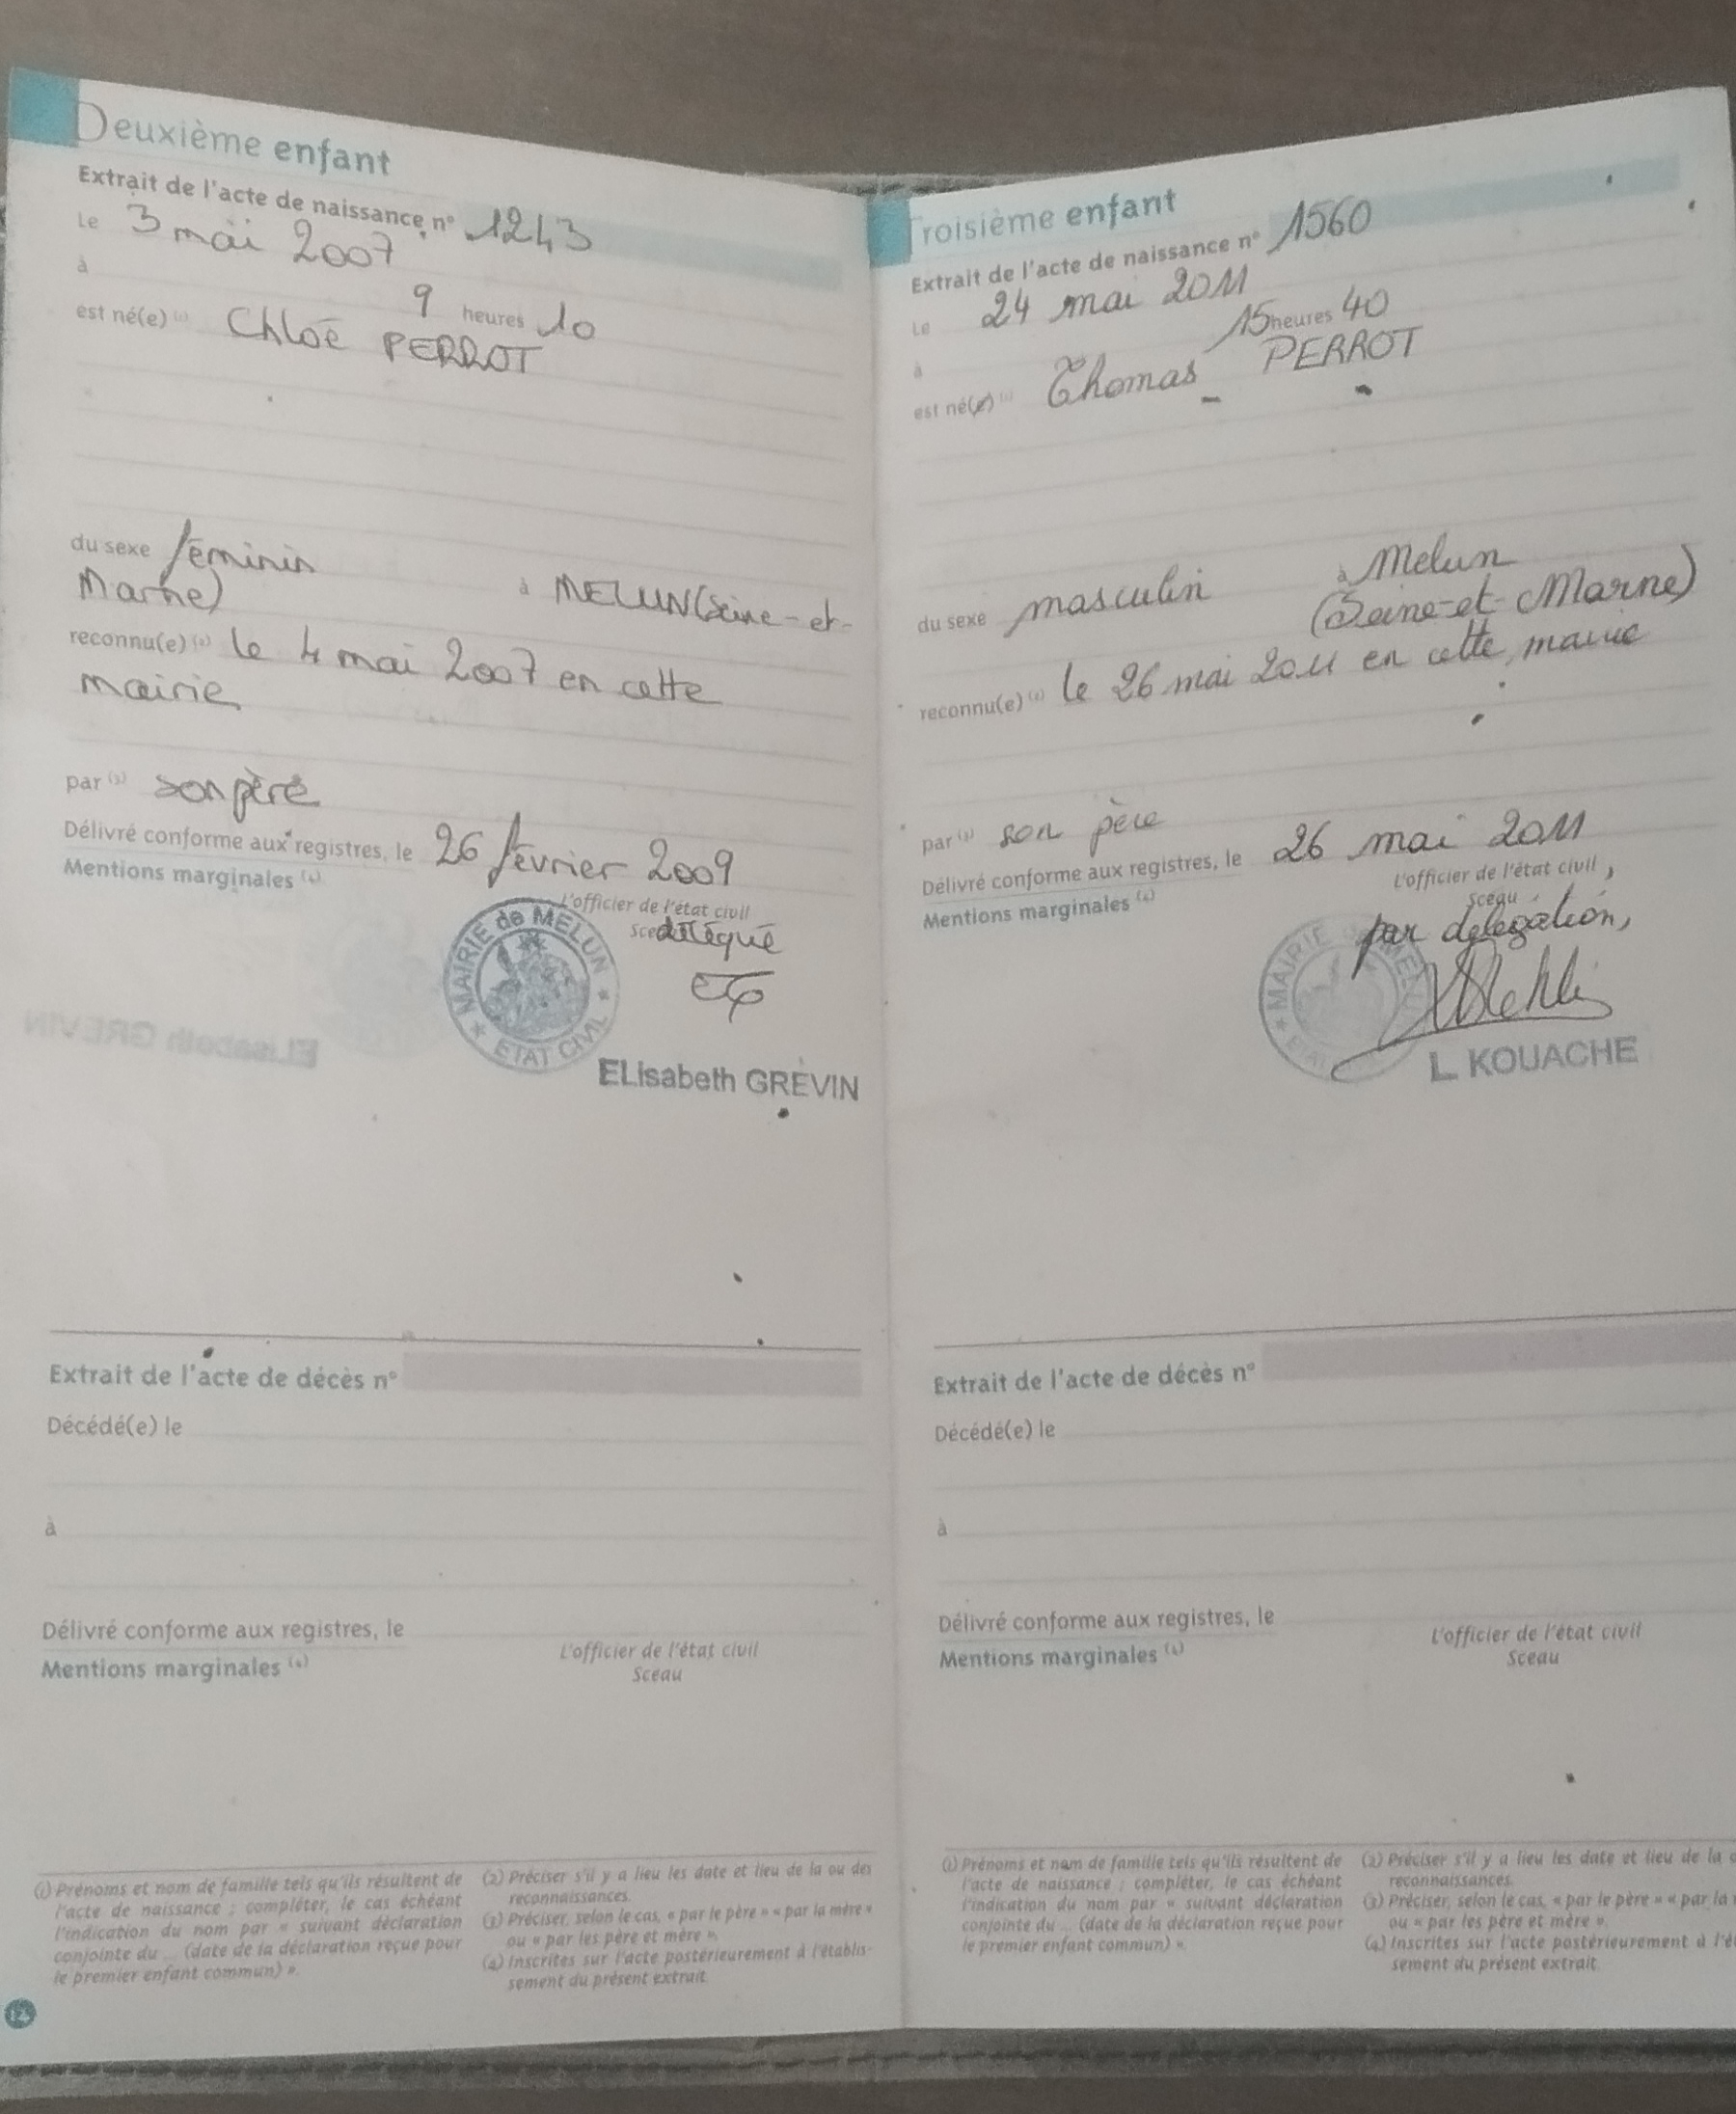 Deuxième enfant
Extrait de l'acte de naissance n° 1243
Le 3 mai 2007
à 9 heures 10
est né(e) (1) Chloé PERROT
du sexe féminin à MELUN (Seine-et-
Marne)
reconnu(e) (2) le 4 mai 2007 en cette
mairie
par (3) son père
Délivré conforme aux registres, le 26 février 2009
Mentions marginales (4)
L'officier de l'état civil
Sceau délégué
MAIRIE de MELUN
ETAT CIVIL
ELisabeth GREVIN
Extrait de l'acte de décès n°
Décédé(e) le
à
Délivré conforme aux registres, le
Mentions marginales (4)
L'officier de l'état civil
Sceau
(1) Prénoms et nom de famille tels qu'ils résultent de
l'acte de naissance ; compléter, le cas échéant
l'indication du nom par « suivant déclaration
conjointe du ... (date de la déclaration reçue pour
le premier enfant commun) ».
(2) Préciser s'il y a lieu les date et lieu de la ou des
reconnaissances.
(3) Préciser, selon le cas, « par le père » « par la mère »
ou « par les père et mère ».
(4) Inscrites sur l'acte postérieurement à l'établis-
sement du présent extrait.
14
Troisième enfant
Extrait de l'acte de naissance n° 1560
Le 24 mai 2011
à 15 heures 40
est né(e) (1) Thomas PERROT
du sexe masculin à Melun
(Seine-et-Marne)
reconnu(e) (2) le 26 mai 2011 en cette mairie
par (3) son père
Délivré conforme aux registres, le 26 mai 2011
Mentions marginales (4)
L'officier de l'état civil,
Sceau
par délégation,
MAIRIE de MELUN
ETAT
L KOUACHE
Extrait de l'acte de décès n°
Décédé(e) le
à
Délivré conforme aux registres, le
Mentions marginales (4)
L'officier de l'état civil
Sceau
(1) Prénoms et nom de famille tels qu'ils résultent de
l'acte de naissance ; compléter, le cas échéant
l'indication du nom par « suivant déclaration
conjointe du ... (date de la déclaration reçue pour
le premier enfant commun) ».
(2) Préciser s'il y a lieu les date et lieu de la
reconnaissances.
(3) Préciser, selon le cas, « par le père » « par la
ou « par les père et mère ».
(4) Inscrites sur l'acte postérieurement à l'é
sement du présent extrait.